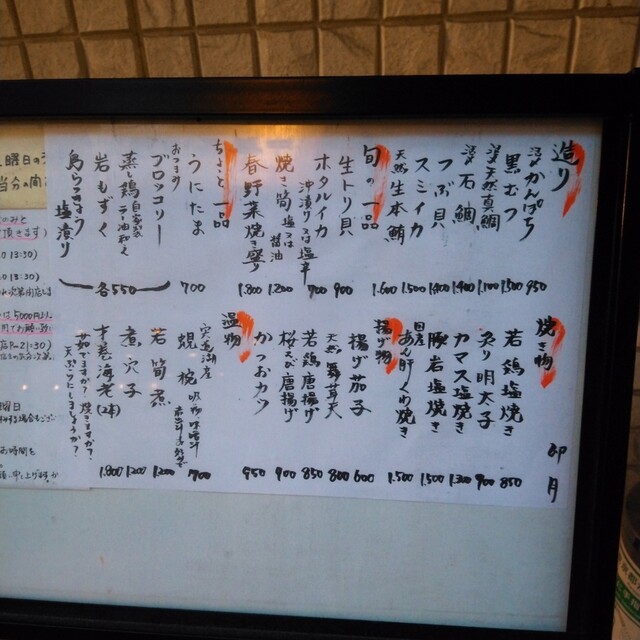 造り
活〆かんぱち 950
黒むつ 1.500
活〆天然真鯛 1.100
活〆石鯛 1.400
つぶ貝 1.400
スミイカ 1.500
天然生本鮪 1.600
旬の一品
生トリ貝 900
ホタルイカ 沖漬り又は塩辛 700
焼き筍 塩又は醤油 1.200
春野菜焼き盛り 1.800
ちょっと一品
うにたま 700
おつまみ
ブロッコリー
蒸し鶏 自家製ラー油和え
岩もずく
島らっきょう塩漬り
各550
焼き物
若鶏塩焼き 850
炙り明太子 900
カマス塩焼き 1.300
豚岩塩焼き 1.500
国産あん肝くわ焼き 1.500
揚げ物
揚げ茄子 600
天然舞茸天 800
若鶏唐揚げ 850
桜えび唐揚げ 900
かつおカツ 950
温物
宍道湖産
蜆椀 700
若筍煮 1.200
煮穴子 1.200
才巻海老(2本) 1.800
茹でますか？焼きますか？
天ぷらにしますか？
卯月
曜日の
当分の間
頂きます)
13:30)
13:30)
は5000円以
R.21:30)
曜日
お時間を
申し上げます